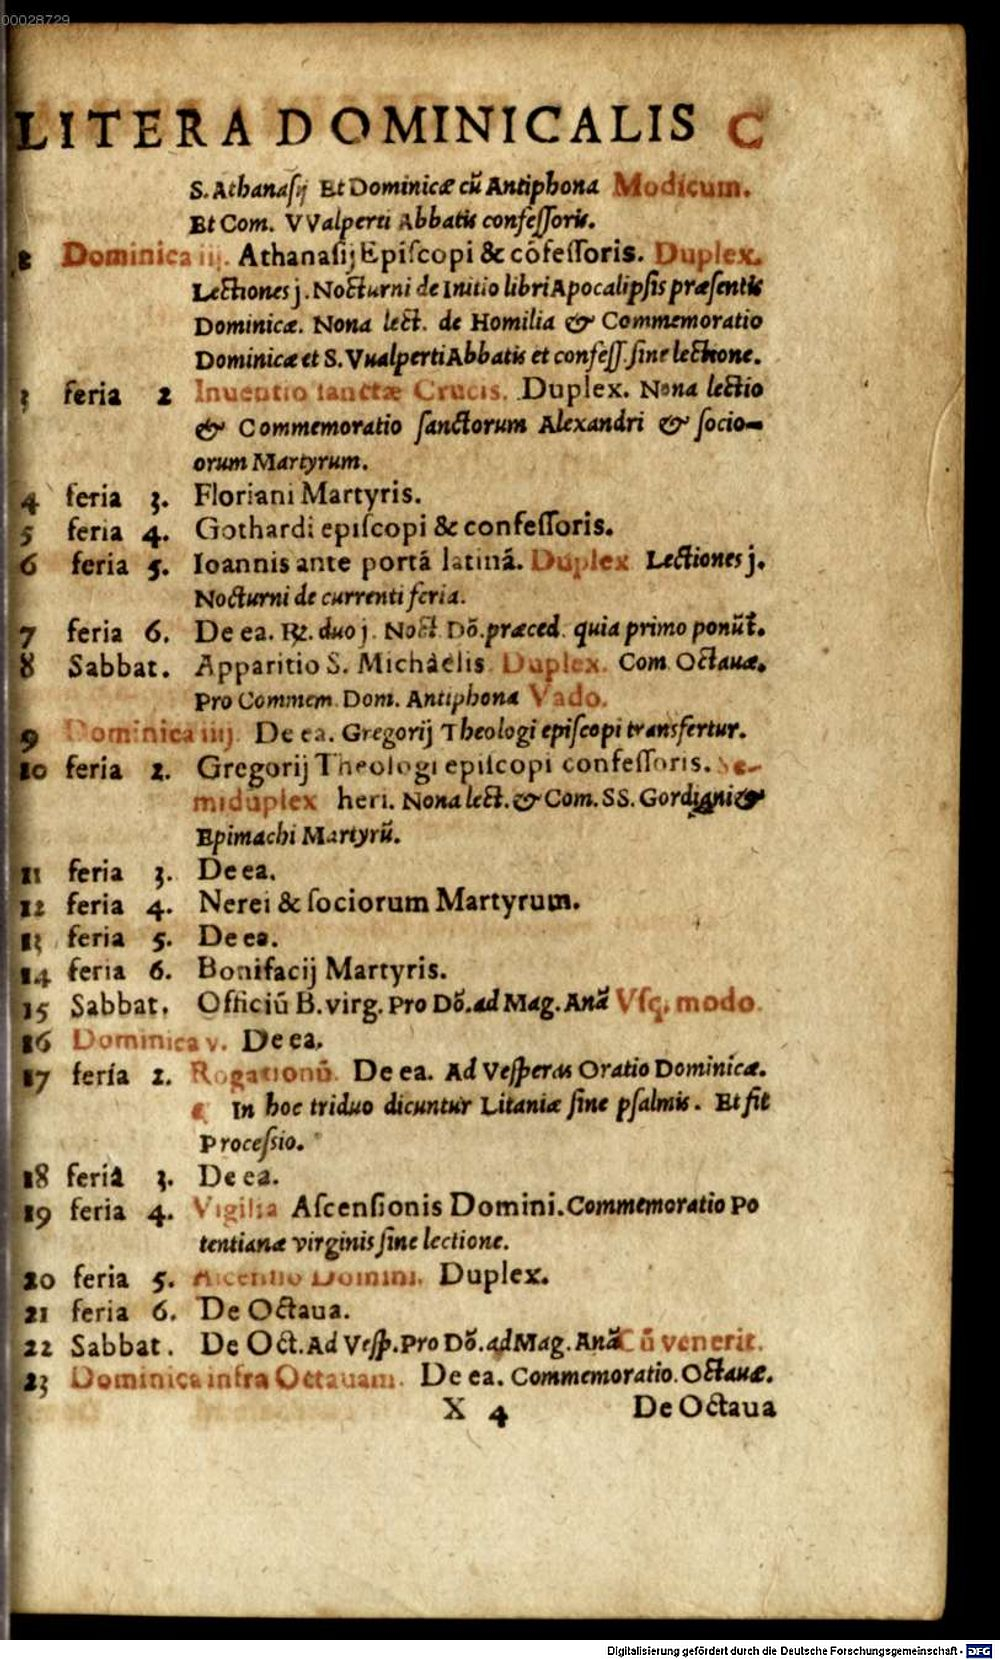 00028729
LITERA DOMINICALIS C
S. Athanaſij Et Dominicæ cū Antiphona Modicum.
Et Com. VValperti Abbatis confeſſoris.
2 Dominica iij. Athanaſij Epiſcopi & cōfeſſoris. Duplex.
Lectiones j. Nocturni de Initio libri Apocalipſis præſentis
Dominicæ. Nona lect. de Homilia & Commemoratio
Dominicæ et S. Vualperti Abbatis et confeſſ. ſine lectione.
3 feria 2 Inuentio ſanctæ Crucis. Duplex. Nona lectio
& Commemoratio ſanctorum Alexandri & ſocio-
orum Martyrum.
4 feria 3. Floriani Martyris.
5 feria 4. Gothardi epiſcopi & confeſſoris.
6 feria 5. Ioannis ante portā latinā. Duplex Lectiones j.
Nocturni de currenti feria.
7 feria 6. De ea. ℞. duo j. Noct. Dō. præced. quia primo ponūt.
8 Sabbat. Apparitio S. Michàelis. Duplex. Com. Octauæ.
Pro Commem. Dom. Antiphona Vado.
9 Dominica iiij. De ea. Gregorij Theologi epiſcopi transfertur.
10 feria 2. Gregorij Theologi epiſcopi confeſſoris. Se-
miduplex heri. Nona lect. & Com. SS. Gordiani &
Epimachi Martyrū.
11 feria 3. De ea.
12 feria 4. Nerei & ſociorum Martyrum.
13 feria 5. De ea.
14 feria 6. Bonifacij Martyris.
15 Sabbat. Officiū B. virg. Pro Dō. ad Mag. Anā Vſq; modo.
16 Dominica v. De ea.
17 feria 2. Rogationū. De ea. Ad Veſperas Oratio Dominicæ.
¶ In hoc triduo dicuntur Litaniæ ſine pſalmis. Et fit
Proceſsio.
18 feria 3. De ea.
19 feria 4. Vigilia Aſcenſionis Domini. Commemoratio Po
tentianæ virginis ſine lectione.
20 feria 5. Aſcenſio Domini. Duplex.
21 feria 6. De Octaua.
22 Sabbat. De Oct. Ad Veſp. Pro Dō. ad Mag. Anā Cū venerit.
23 Dominica infra Octauam. De ea. Commemoratio. Octauæ.
X 4 De Octaua
Digitalisierung gefördert durch die Deutsche Forschungsgemeinschaft - DFG